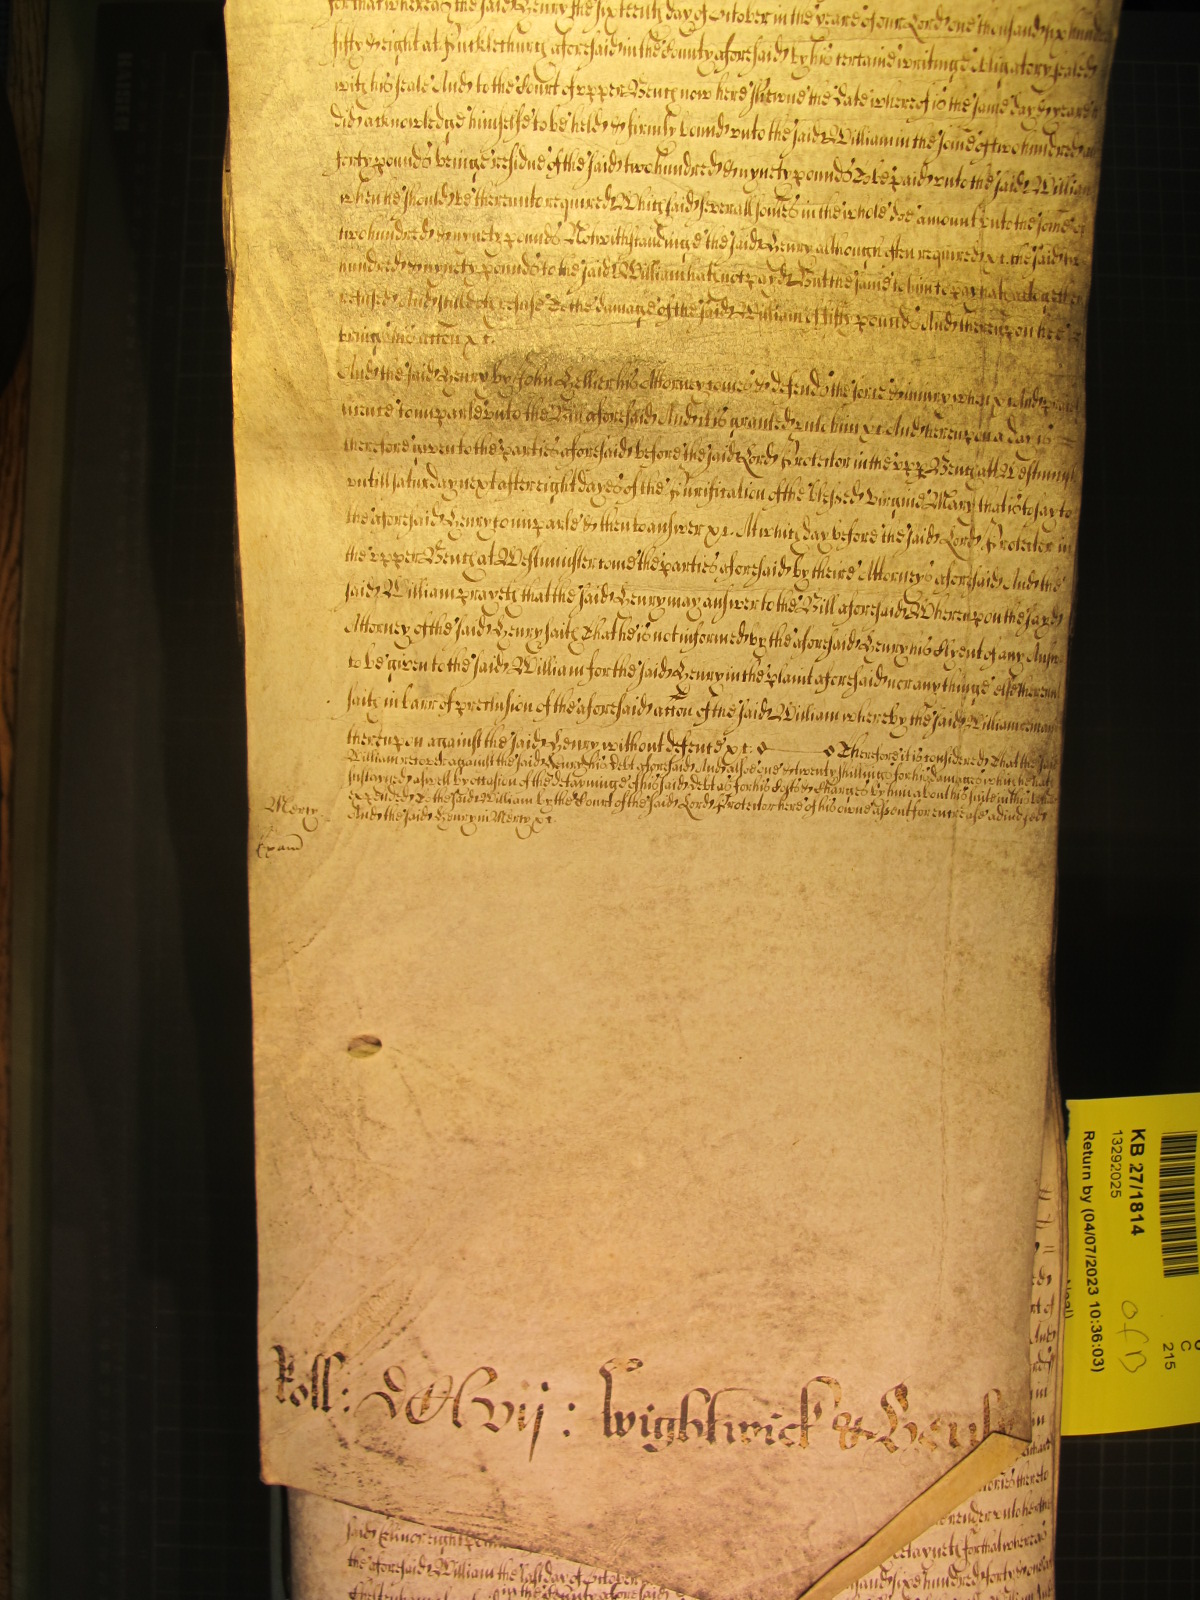 for that whereas the said Henry the sixteenth day of October in the yeare of our Lord one thousand six hundred
fifty & eight at Pucklechurch aforesaid in the County aforesaid by his certaine writinge obligatory sealed
with his seale And to the Court of upper Bench now here shewne the date whereof is the same day & yeare
did acknowledge himselfe to be held & firmly bound unto the said William in the some of two hundred &
forty pounds beinge residue of the said two hundred & nynety pounds To be paid unto the said William
when he should be thereunto required Which said severall somes in the whole doe amount unto the some of
two hundred & nynety pounds Notwithstandinge the said Henry although often required &c. the said two
hundred & nynety pounds to the said William hath not payd But the same to him to pay hath altogether
refused And still doth refuse To the damage of the said William of fifty pounds And thereupon hee
brings his accon &c.
And the said Henry by John Hellier his Attorney comes & defends the force & iniury when &c And prayes
licence to imparle unto the Bill aforesaid And it is granted unto him &c And hereupon a day is
therefore given to the parties aforesaid before the said Lord Protector in the upper Bench att Westminster
untill saturday next after eight dayes of the Purification of the blessed virgine Mary that is to say to
the aforesaid Henry to imparle & then to answer &c. At which day before the said Lord Protector in
the upper Bench at Westminster come the parties aforesaid by theire Attorneys aforesaid And the
said William prayeth that the said Henry may answer to the Bill aforesaid Whereupon the sayd
Attorney of the said Henry saith That he is not informed by the aforesaid Henry his Clyent of any Answer
to be given to the said William for the said Henry in the plaint aforesaid nor any thinge else thereunto
saith in barr of preclusion of the aforesaid accon of the said William whereby the said William remaines
thereupon against the said Henry without defence &c. Therefore it is considered That the said
William recover against the said Henry his debt aforesaid And alsoe one & twenty shillings for his damages which he hath
susteyned aswell by occasion of the detayninge of his said debt as for his Costs & Charges by him about his suite in this behalfe
expended To the said William by the Court of the said Lord Protector here of his owne assent for encrease adiudged
Mercy And the said Henry in Mercy &c.
Exam
Roll: DCLvij : Wightwick &
said Elinor eight
the aforesaid William the last day of October
in the County aforesaid
render unto her the
for that whereas
sand sixe hundred forty &
KB 27/1814
13292025
Return by (04/07/2023 10:36:03)
C
215